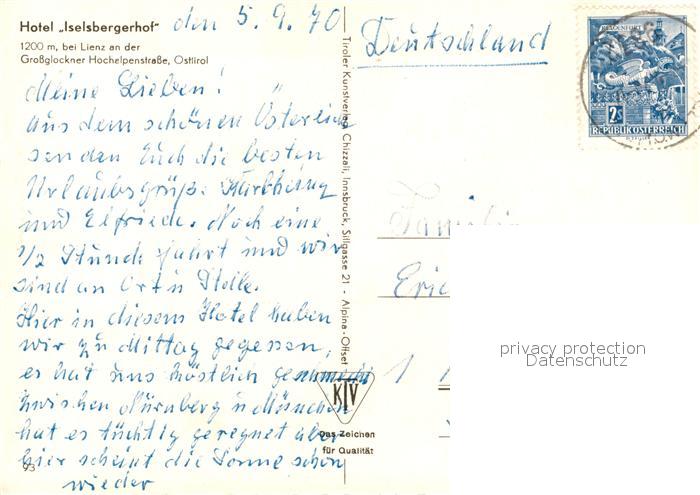 Hotel „Iselsbergerhof" den 5.9.70
1200 m, bei Lienz an der
Großglockner Hochelpenstraße, Osttirol
Meine Lieben!
Aus dem schönen Österreich
senden Euch die besten
Urlaubsgrüße
und Elfriede. Noch eine
1/2 Stunde fahrt und wir
sind an Ort u Stelle.
Hier in diesem Hotel haben
wir zu Mittag gegessen,
es hat uns köstlich geschmeckt
zwischen Nürnberg u München
hat es tüchtig geregnet aber
hier scheint die Sonne schon
wieder
93
Tiroler Kunstverlag Chizzali, Innsbruck, Sillgasse 21 - Alpina-Offset
KTV
Das Zeichen
für Qualität
Deutschland
KLAGENFURT
2S
REPUBLIK ÖSTERREICH
Famili
Eric
privacy protection
Datenschutz